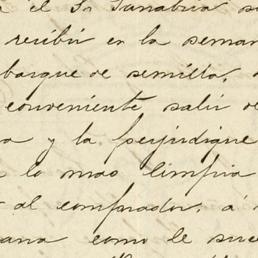 el Sr Sanabria
recibir en la seman
barque de semilla,
conveniente salir
a y la perjudique
lo mas limpia
al comprador, á
ana como le suce